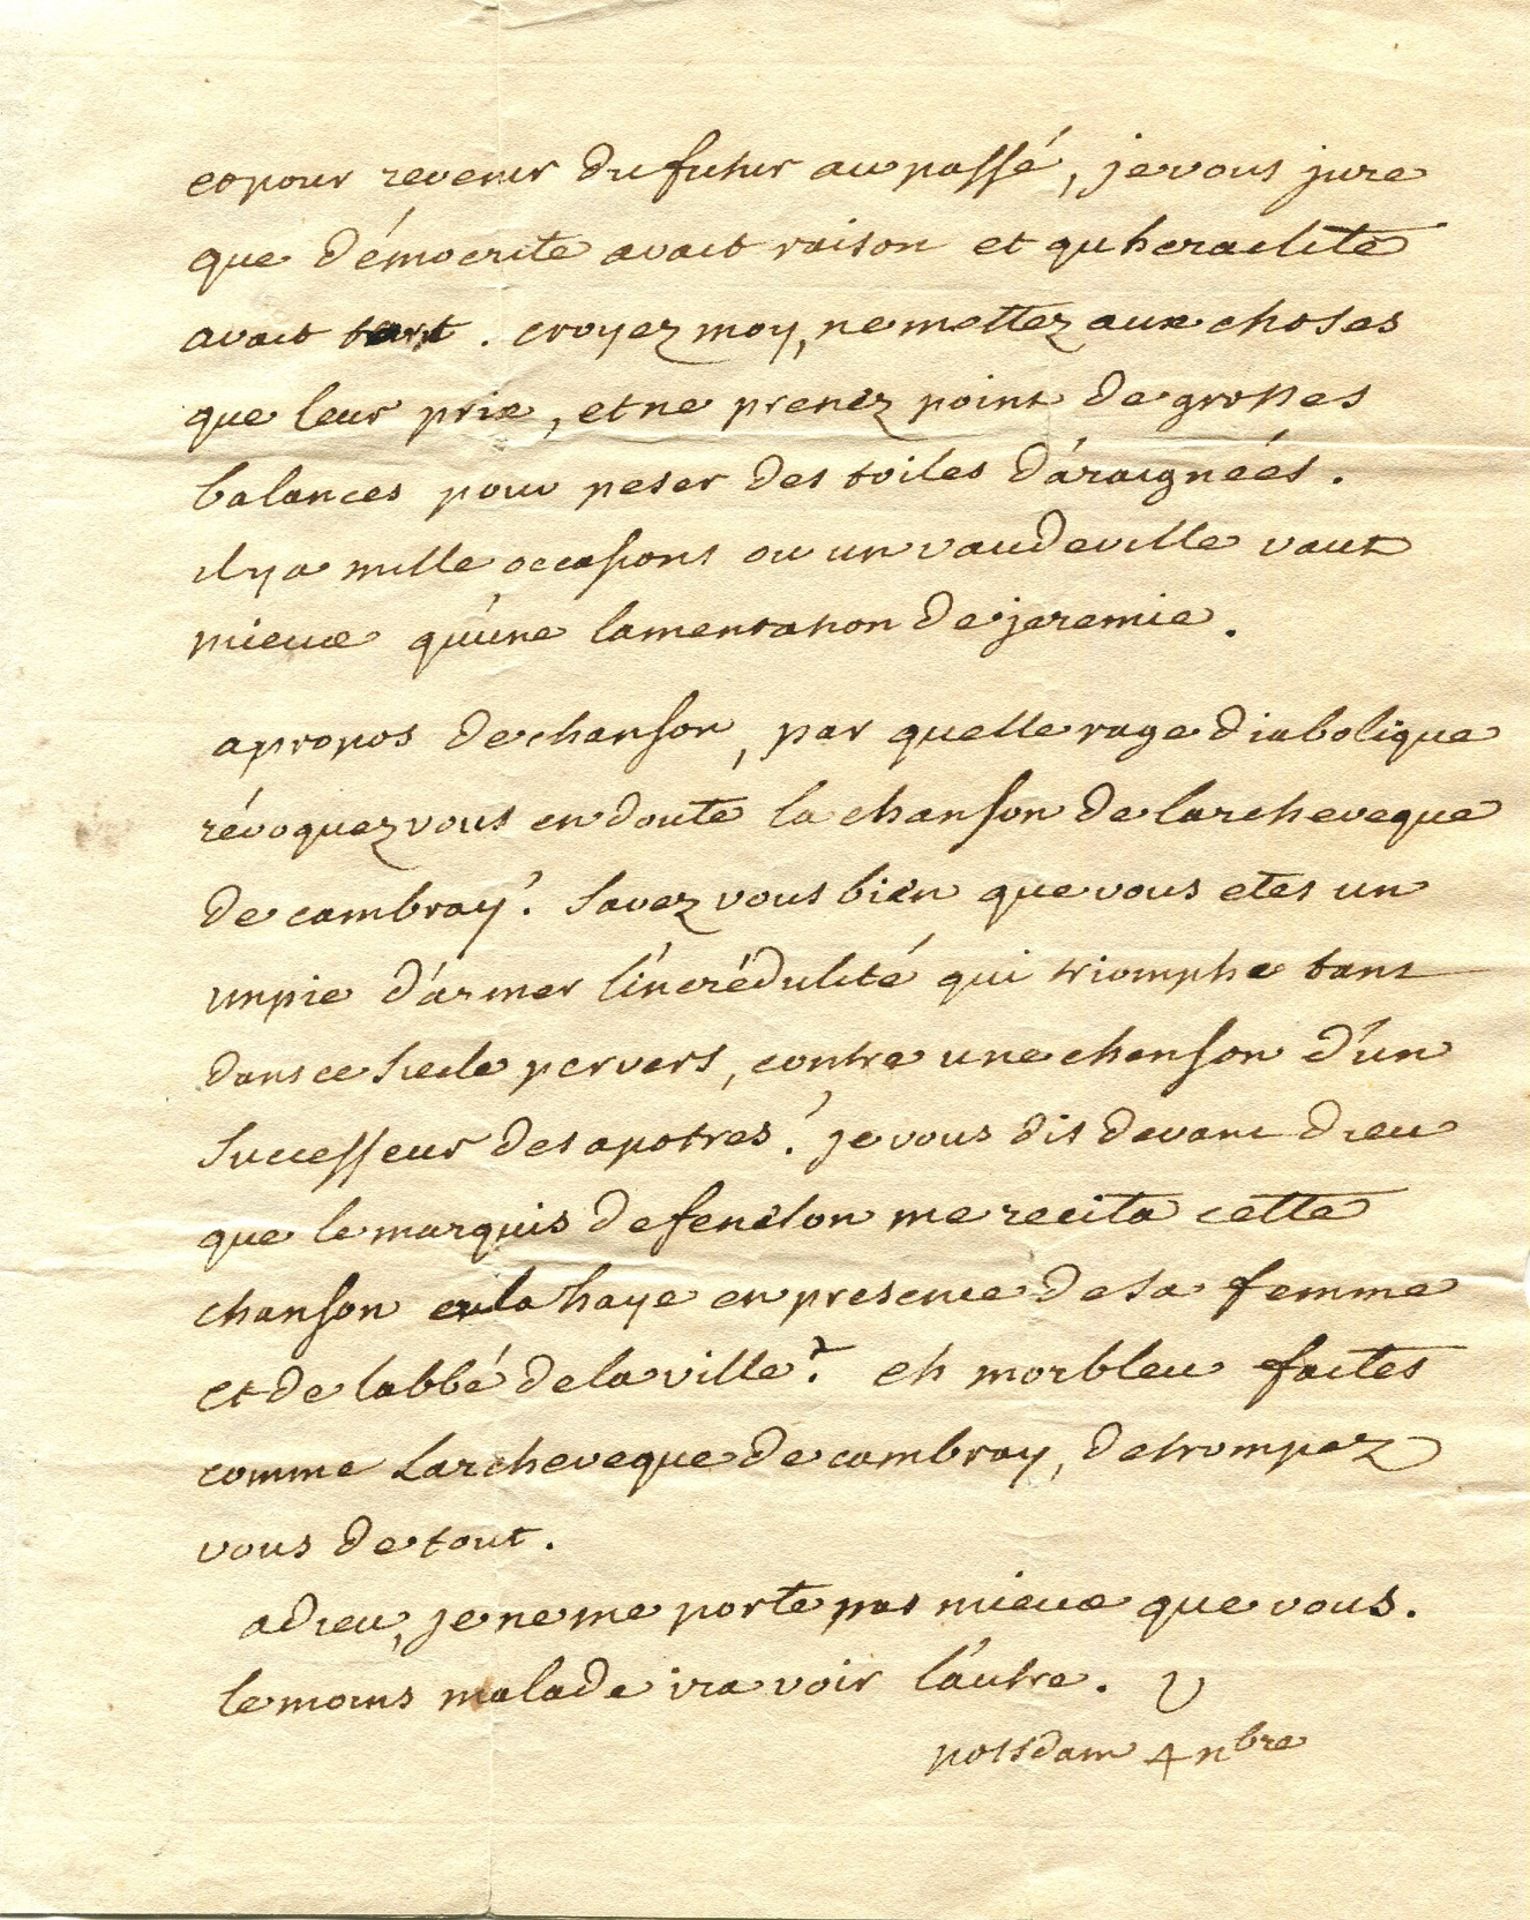 et pour revenir du futur au passé, je vous jure
que démocrite avait raison et qu'heraclite
avait tort. croyez moy, ne mettez aux choses
que leur prix, et ne prenez point de grosses
balances pour peser des toiles d'áraignéés.
il y a mille occasions ou un vaudeville vaut
mieux qu'une lamentation de jeremie.
apropos de chanson, par quelle rage diabolique
révoquez vous en doute la chanson de larcheveque
de cambray? Savez vous bien que vous etes un
impie d'ármer l'incrédulité qui triomphe tant
dans ce siecle pervers, contre une chanson d'un
successeur des apotres? je vous dis devant dieu
que le marquis de fenelon me recita cette
chanson a la haye en presence de sa femme
et de labbé de la ville? eh morbleu faites
comme Larcheveque de cambray, detrompez
vous de tout.
adieu, je ne me porte pas mieux que vous.
le moins malade ira voir l'autre. V
potsdam 4 nbre